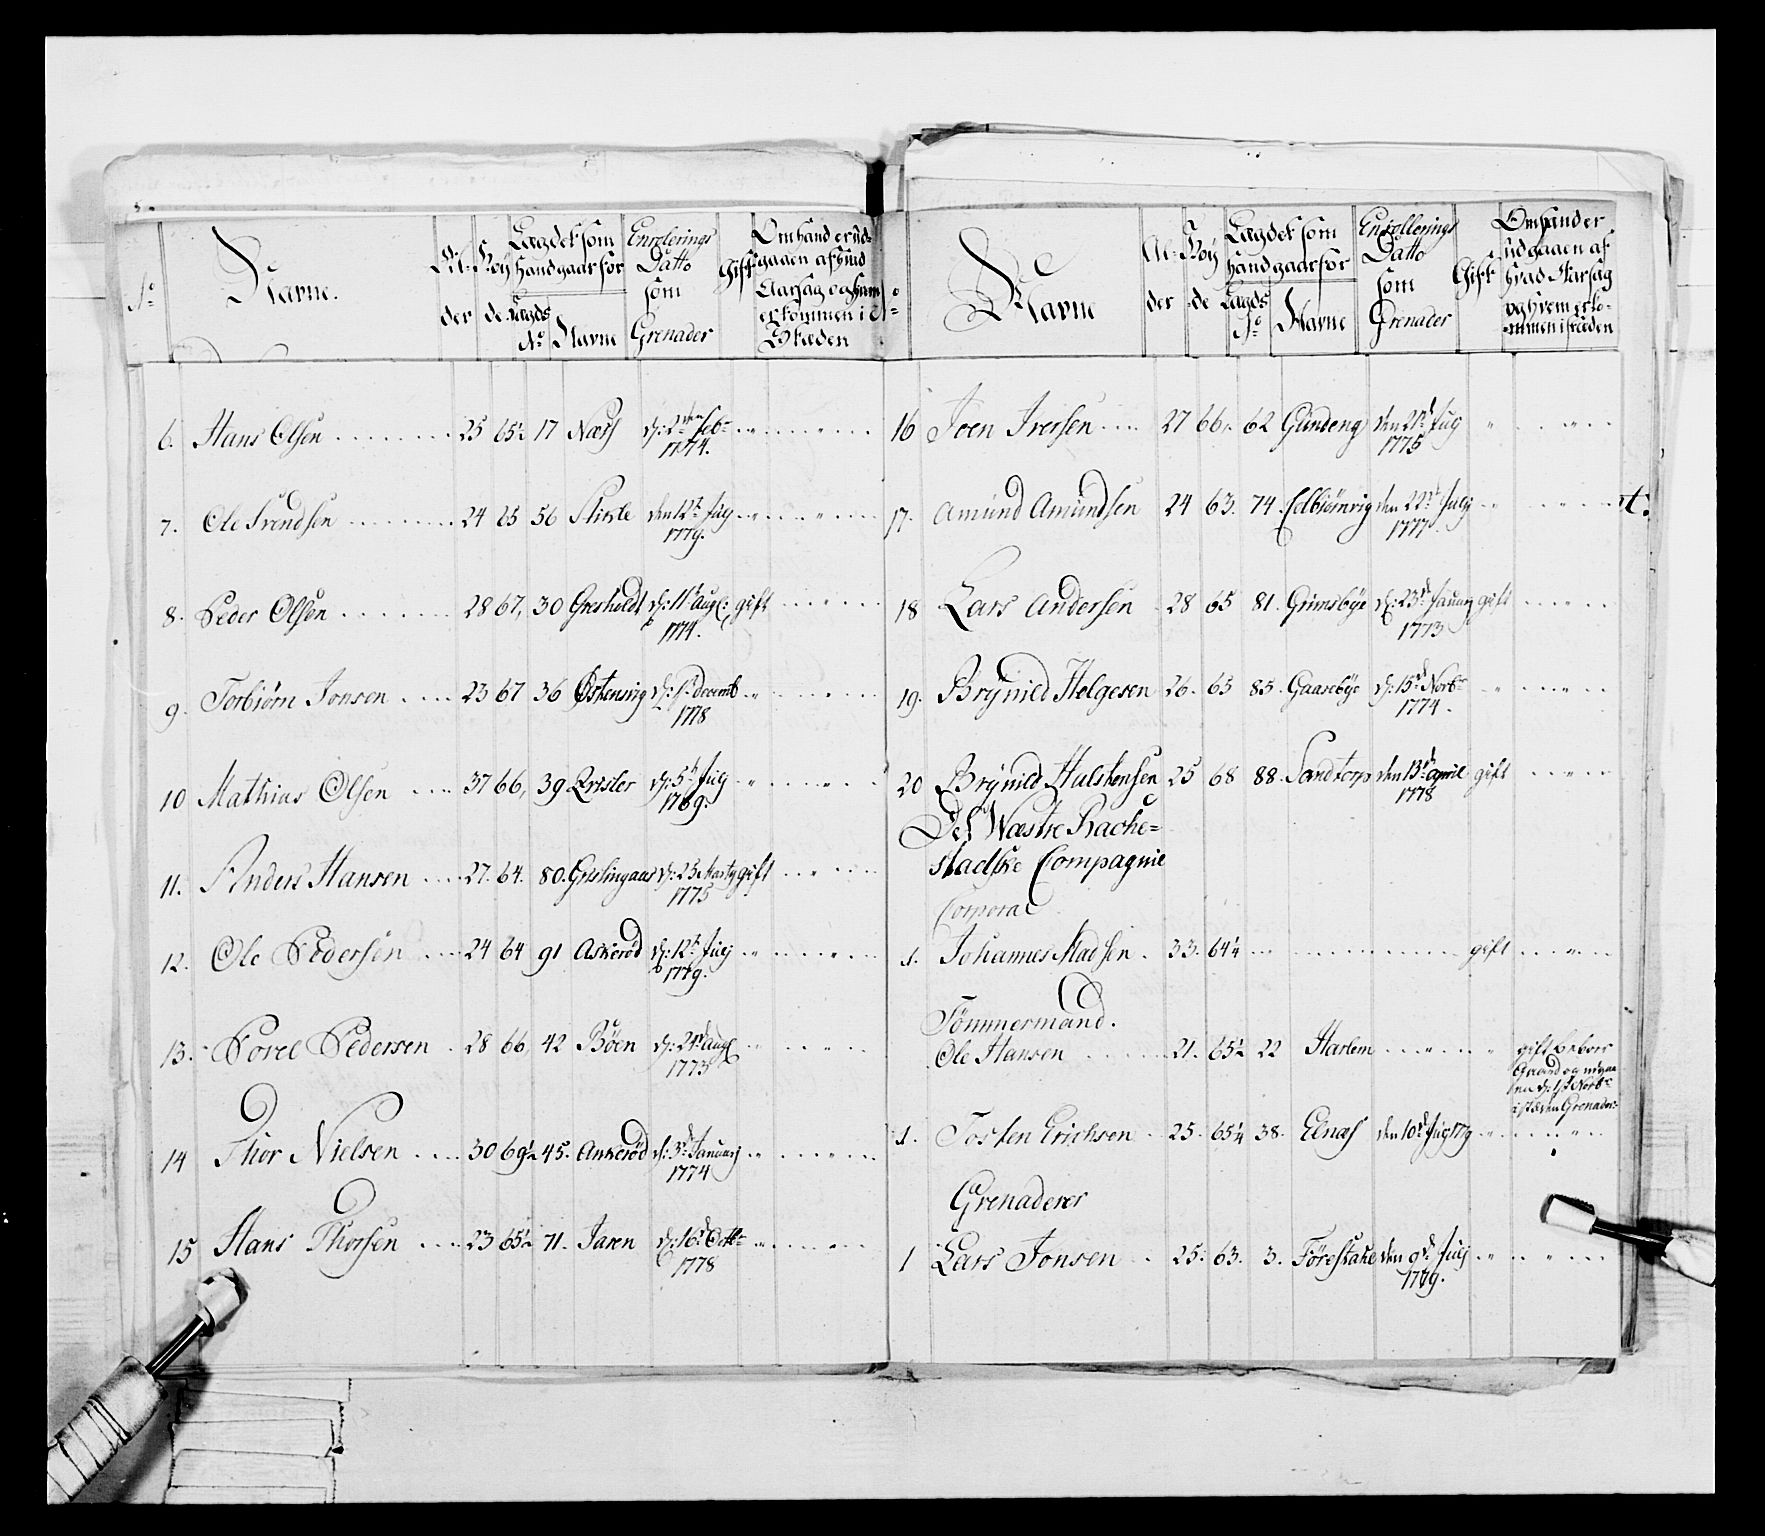 No
Navne.
Al-
der
Høy
de
Lagdet som
hand gaar for
Lagds
No
Navne
Enrolerings
Datto
som
Grenader
Gift
Om hand er ud-
gaaen af hvad
Aarsag og hvem
er kommen i
Stæden
6. Hans Olsen 25 65½ 17 Næss d: 2den Feb
1774.
7. Ole Svendsen 24 65 56 den 12te July
1779.
8. Peder Olsen 28 67, 30 Gresholdt d: 11te Aug: gift
1774.
9. Torbiørn Jonsen 23 67 36 Østensvig d: 1te Decemb
1778
10 Mathias Olsen 37 66, 39 d: 5te July
1769.
11. Anders Hansen 27. 64. 80. Grislingaas d: 23 Marty gift
1775
12. Ole Pedersen 24 64 91 Askerød d: 12te July
1779.
13. Povel Pedersen 28 66 42 Bøen d: 24de Aug
1773
14 Thor Nielsen 30 69½ 45. Ankerød d: 3de January
1774
15 Hans Thorsen 23 65½ 71. Jaren d: 16de Octbr
1778
No
Navne
Al-
der
Høy
de
Lagdet som
hand gaar for
Lagds
No
Navne
Enrollerings
Datto
som
Grenader
Gift
Om hand er
udgaaen af
hvad Aarsag
og hvem er ko-
mmen i stæden
16 Joen Iversen 27 66, 62 Gundeng den 21de July
1775
17. Amund Amundsen 24 63. 74. Esbiørnrig den 22de July
1777.
t.
18 Lars Andersen 28 65 81. Grimsbye d: 23de January gift
1773
19. Brynild Helgesen 26. 65 85. Gaasebye d: 15de Novbr
1774.
20 Brynild Halstensen 25 68 88. Sandtorp den 13de April gift
1778
Det Wæstre Rache-
stadske Compagnie
Corporal
1. Johannes Madsen. 33. 64¼ gift
Tømmermand.
Ole Hansen 21. 65½ 22 Harlem gift beboer
Gaard og udgaa-
en d: 1te Novbr
i stæden Grenader:
1. Tosten Erichsen 25. 65¼ 38. Elnæs den 10de July 1779
Grenaderer
1 Lars Jonsen 25. 63. 3. Førestahe den 9de July
1779.